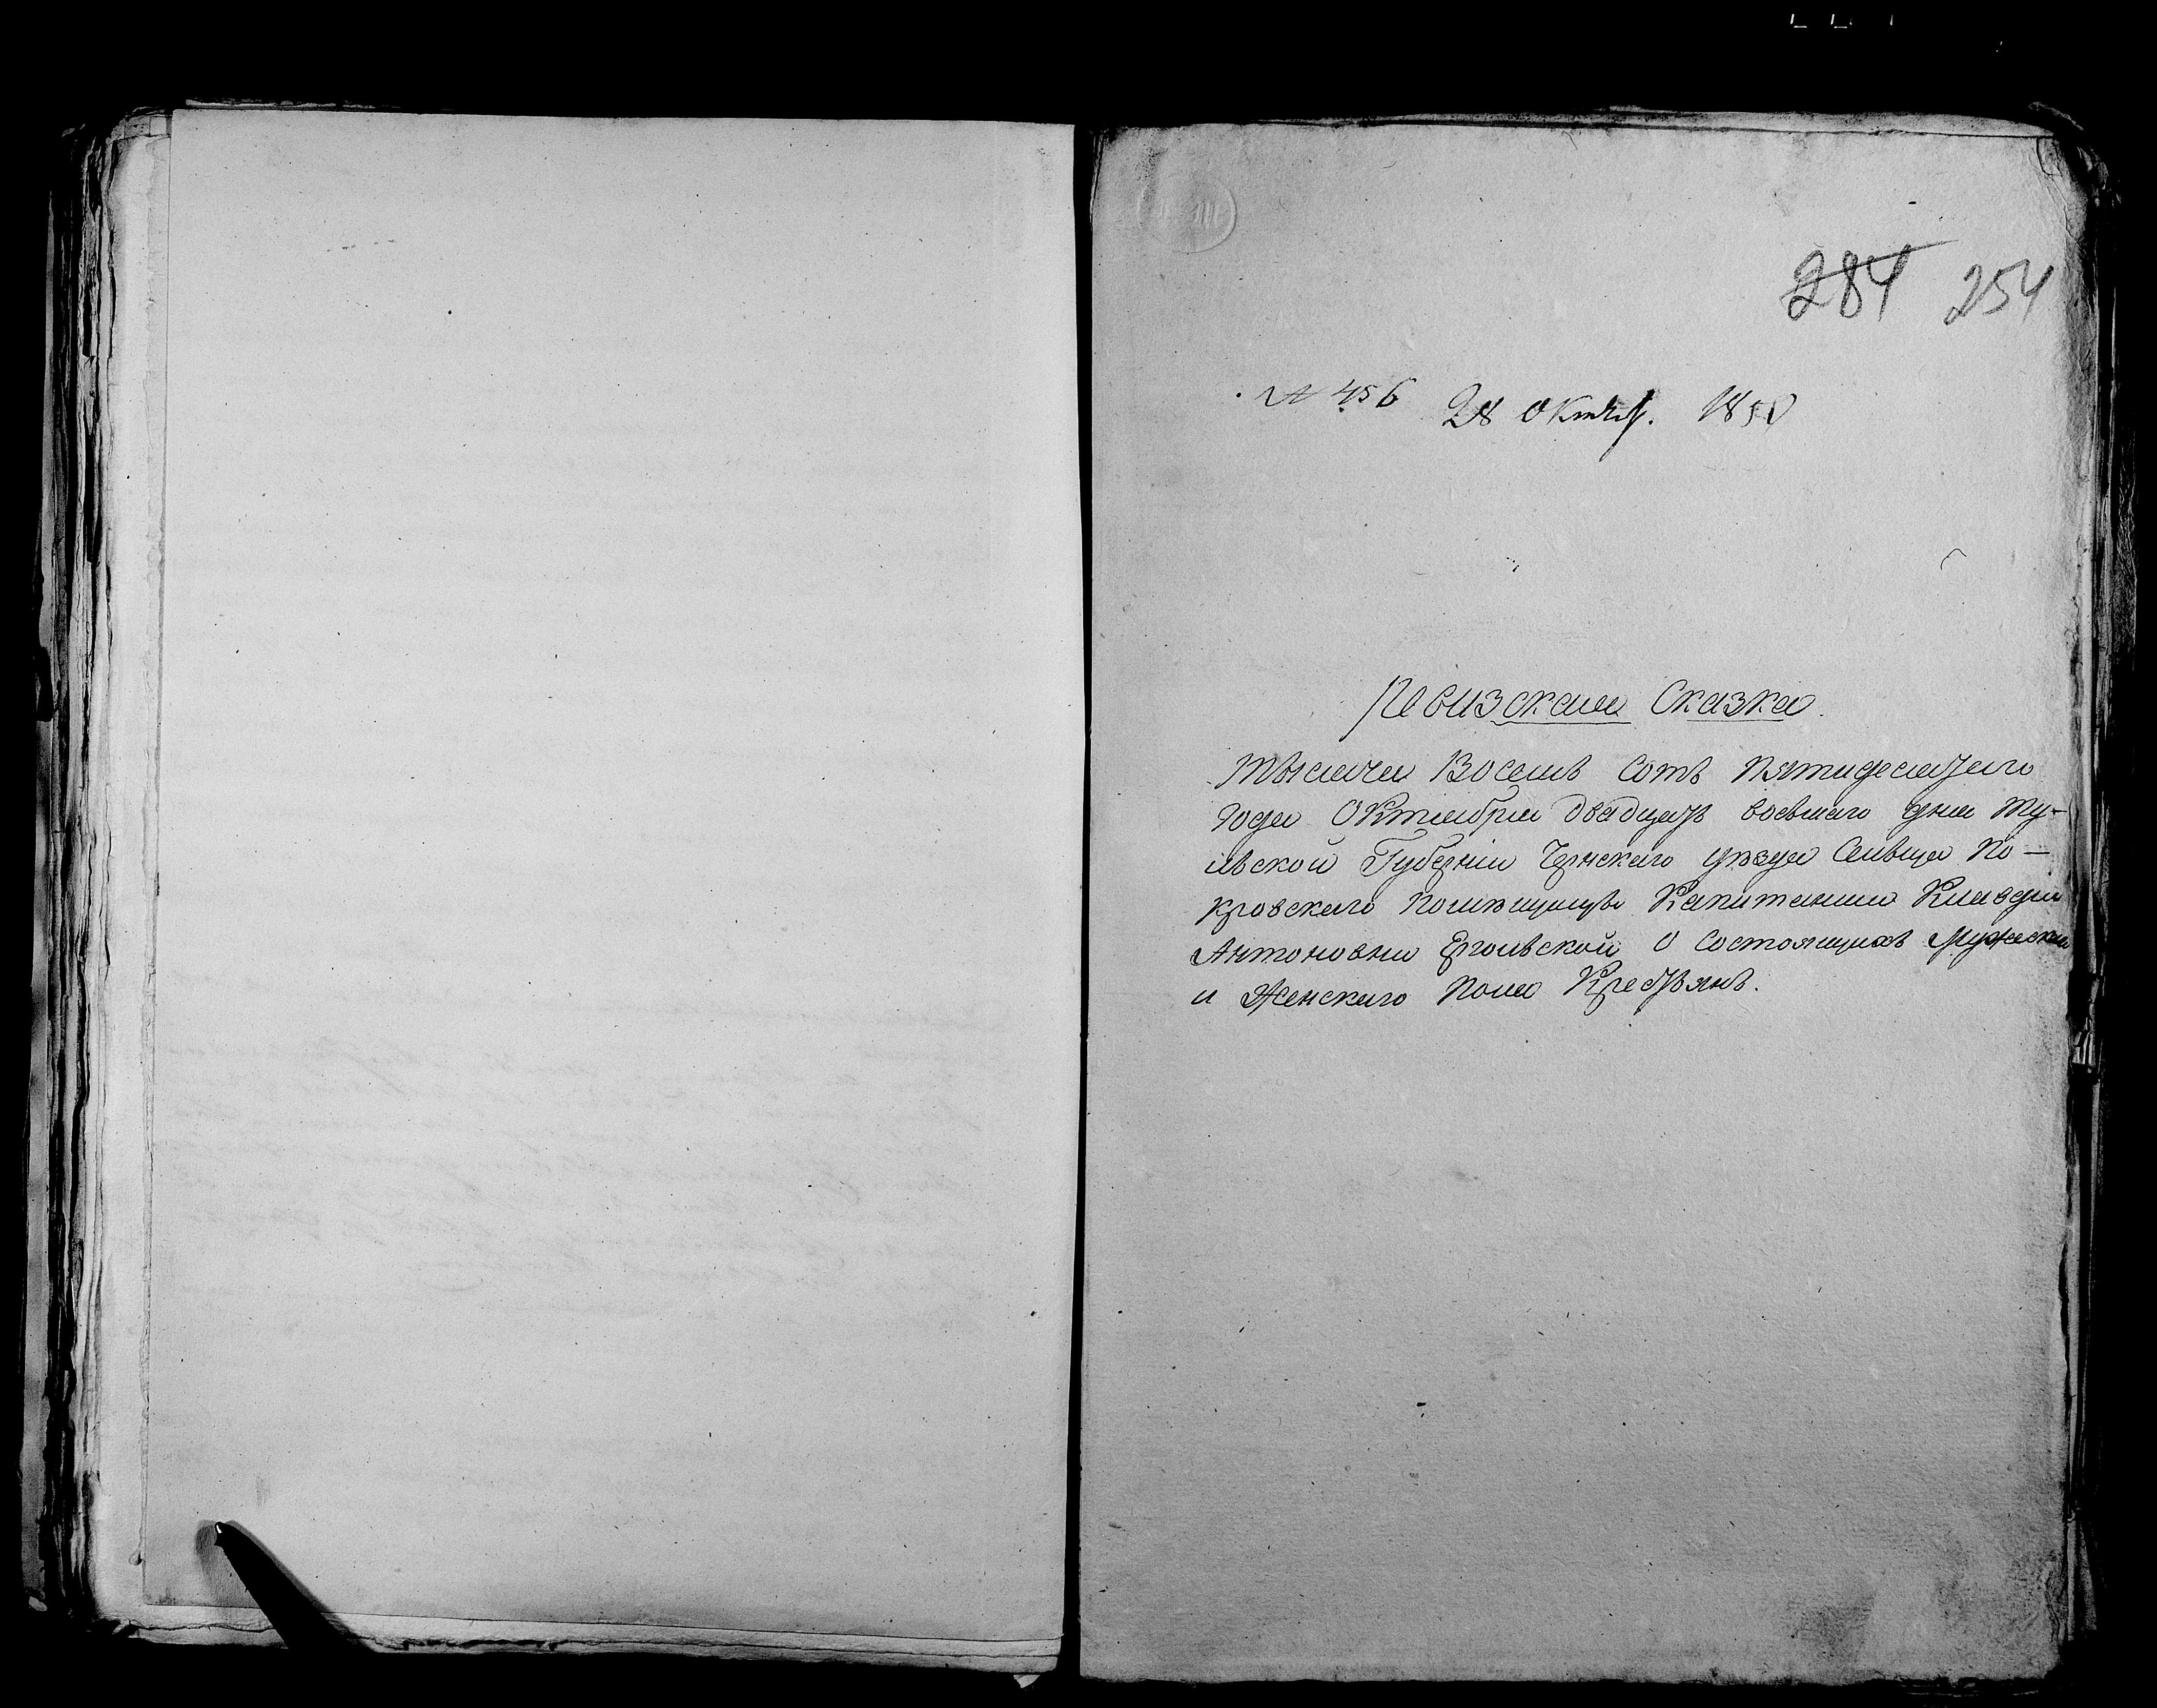 284 254
№ 456 28 Октяб. 1850
Ревизская Сказка.
Тысяча Восемь Сотъ Пятидесятаго
Года Октября двадцать восьмаго дня Ту-
льской Губерніи Чернскаго уѣзда Сельца По-
кровскаго Помѣщицы Капитанши Клавдіи
Антоновны Ергольской О Состоящихъ Мужеска
и Женскаго Пола Крестьянъ.